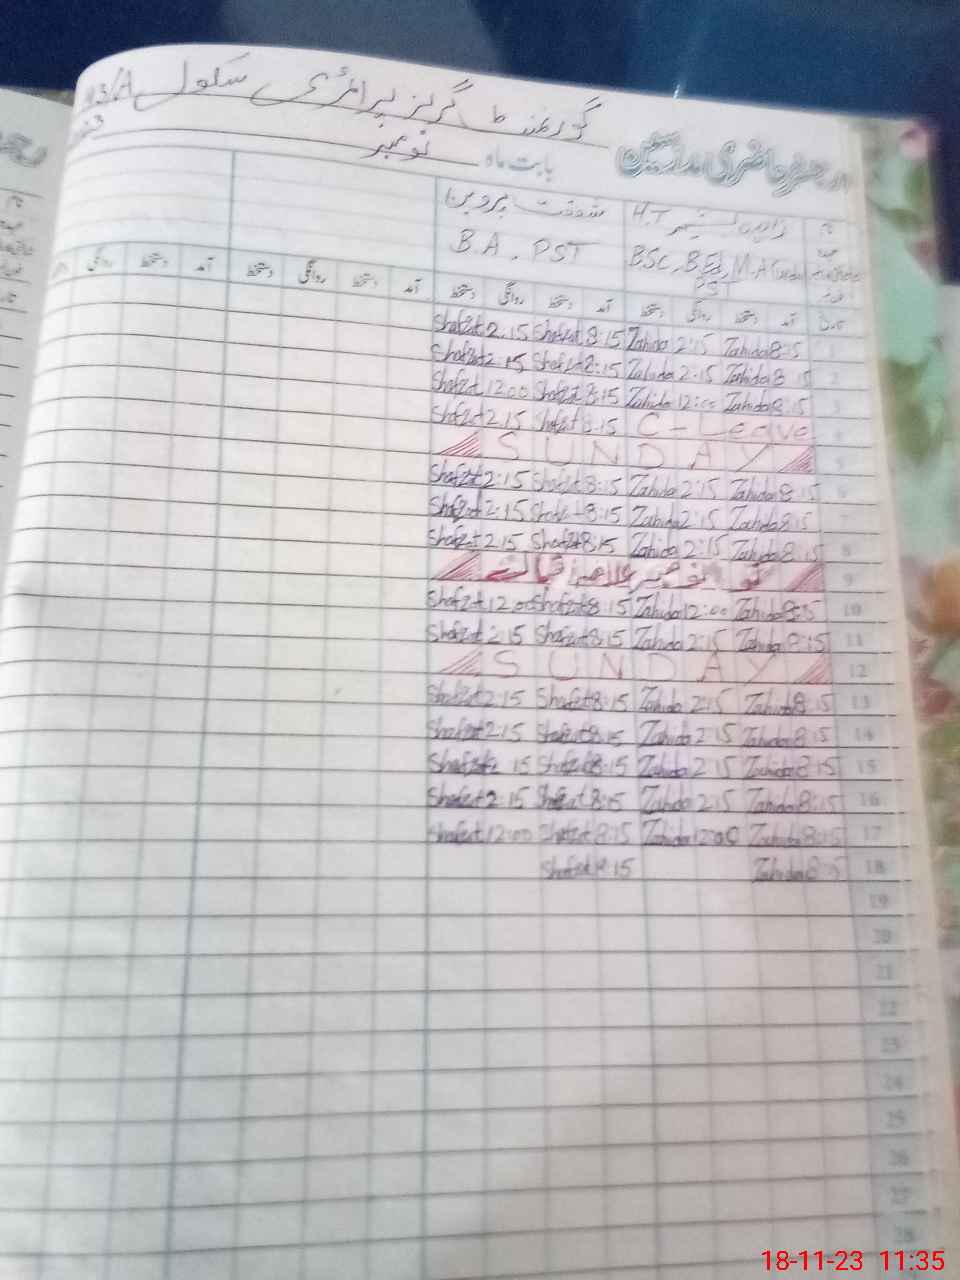 گورنمنٹ گرلز پرائمری سکول 43/A
رجسٹر حاضری مدرسین بابت ماہ نومبر
نام H.T شفقت پروین
BSC, B.Ed, M.A (Urdu) B.A, PST
PST
آمد دستخط روانگی دستخط آمد دستخط روانگی دستخط آمد دستخط روانگی دستخط آمد دستخط روانگی
1 Zahida 8:15 Zahida 2:15 Shafqat 8:15 Shafqat 2:15
2 Zahida 8:15 Zahida 2:15 Shafqat 8:15 Shafqat 2:15
3 Zahida 8:15 Zahida 12:00 Shafqat 8:15 Shafqat 12:00
4 C-Leave Shafqat 8:15 Shafqat 2:15
5 SUNDAY
6 Zahida 8:15 Zahida 2:15 Shafqat 8:15 Shafqat 2:15
7 Zahida 8:15 Zahida 2:15 Shafqat 8:15 Shafqat 2:15
8 Zahida 8:15 Zahida 2:15 Shafqat 8:15 Shafqat 2:15
9 نومبر علامہ اقبال ڈے
10 Zahida 8:15 Zahida 12:00 Shafqat 8:15 Shafqat 12:00
11 Zahida 8:15 Zahida 2:15 Shafqat 8:15 Shafqat 2:15
12 SUNDAY
13 Zahida 8:15 Zahida 2:15 Shafqat 8:15 Shafqat 2:15
14 Zahida 8:15 Zahida 2:15 Shafqat 8:15 Shafqat 2:15
15 Zahida 8:15 Zahida 2:15 Shafqat 8:15 Shafqat 2:15
16 Zahida 8:15 Zahida 2:15 Shafqat 8:15 Shafqat 2:15
17 Zahida 8:15 Zahida 12:00 Shafqat 8:15 Shafqat 12:00
18 Zahida 8:15 Shafqat 8:15
19
20
21
22
23
24
25
26
27
28
18-11-23 11:35